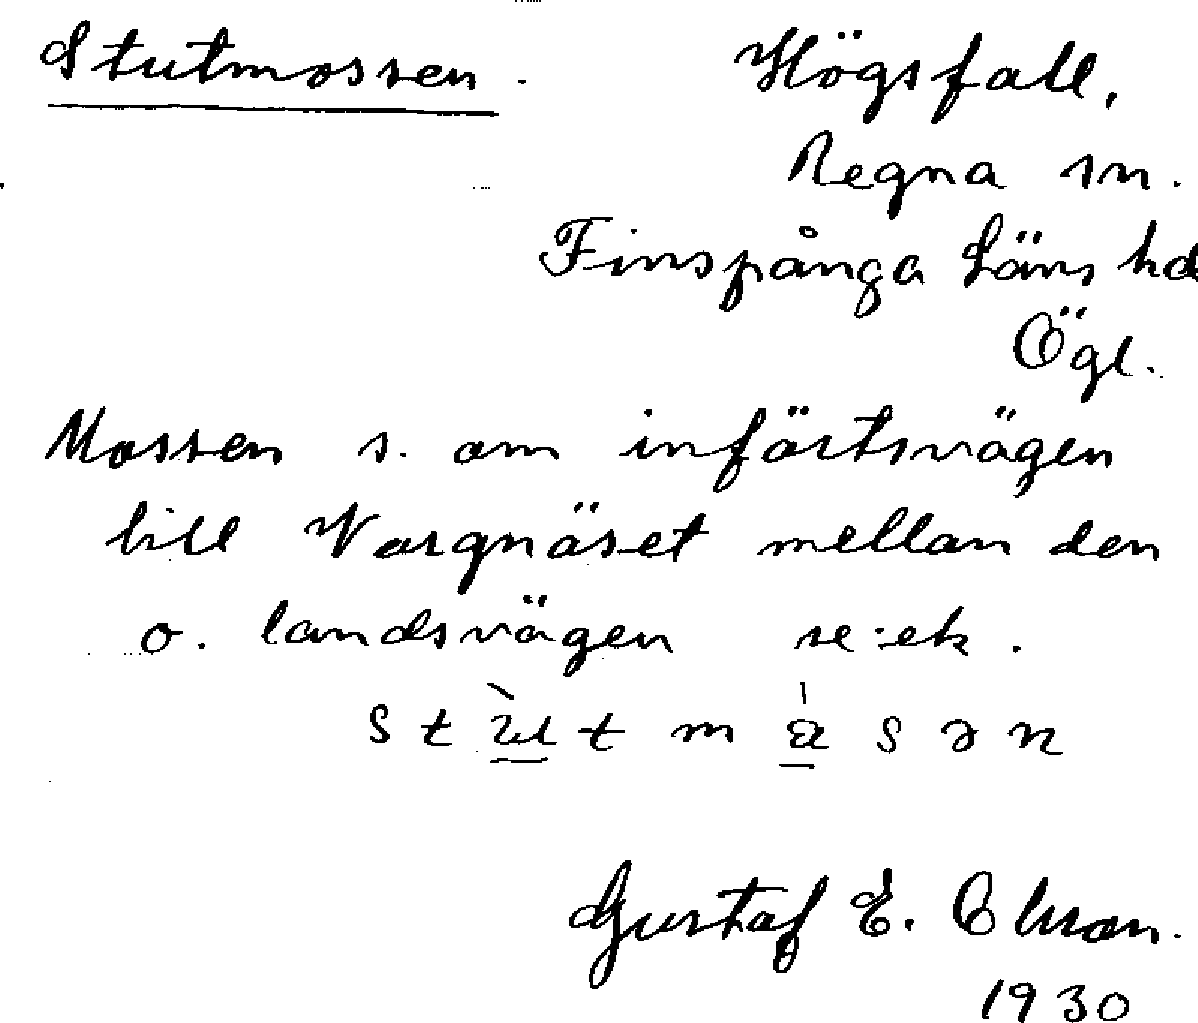 Stutmossen.
Högsfall,
Regna sn.
Finspånga läns hd
Ögl.
Mossen s. om infärtsvägen
till Vargnäset mellan den
o. landsvägen se:ek.
Gustaf E.
1930